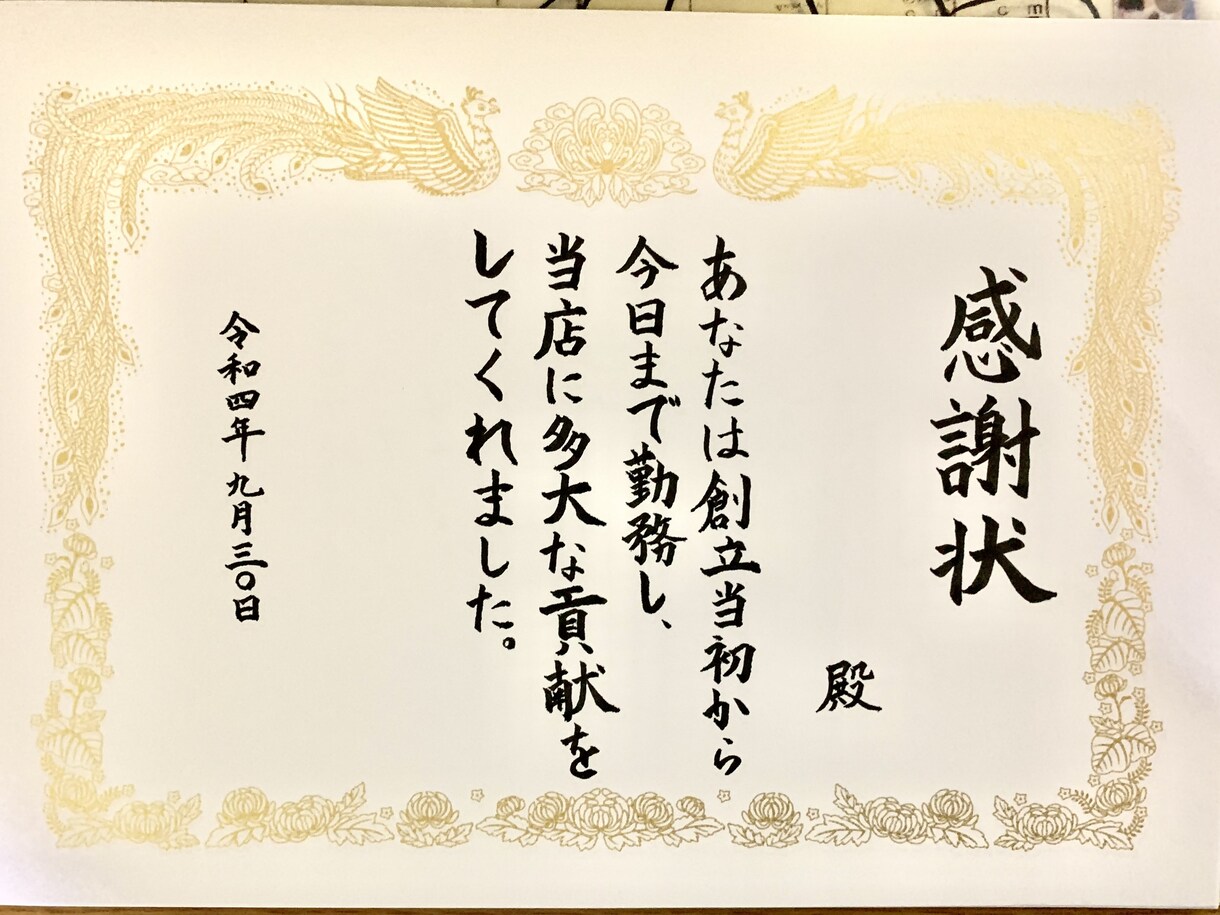 感謝状
殿
あなたは創立当初から
今日まで勤務し、
当店に多大な貢献を
してくれました。
令和四年 九月三〇日